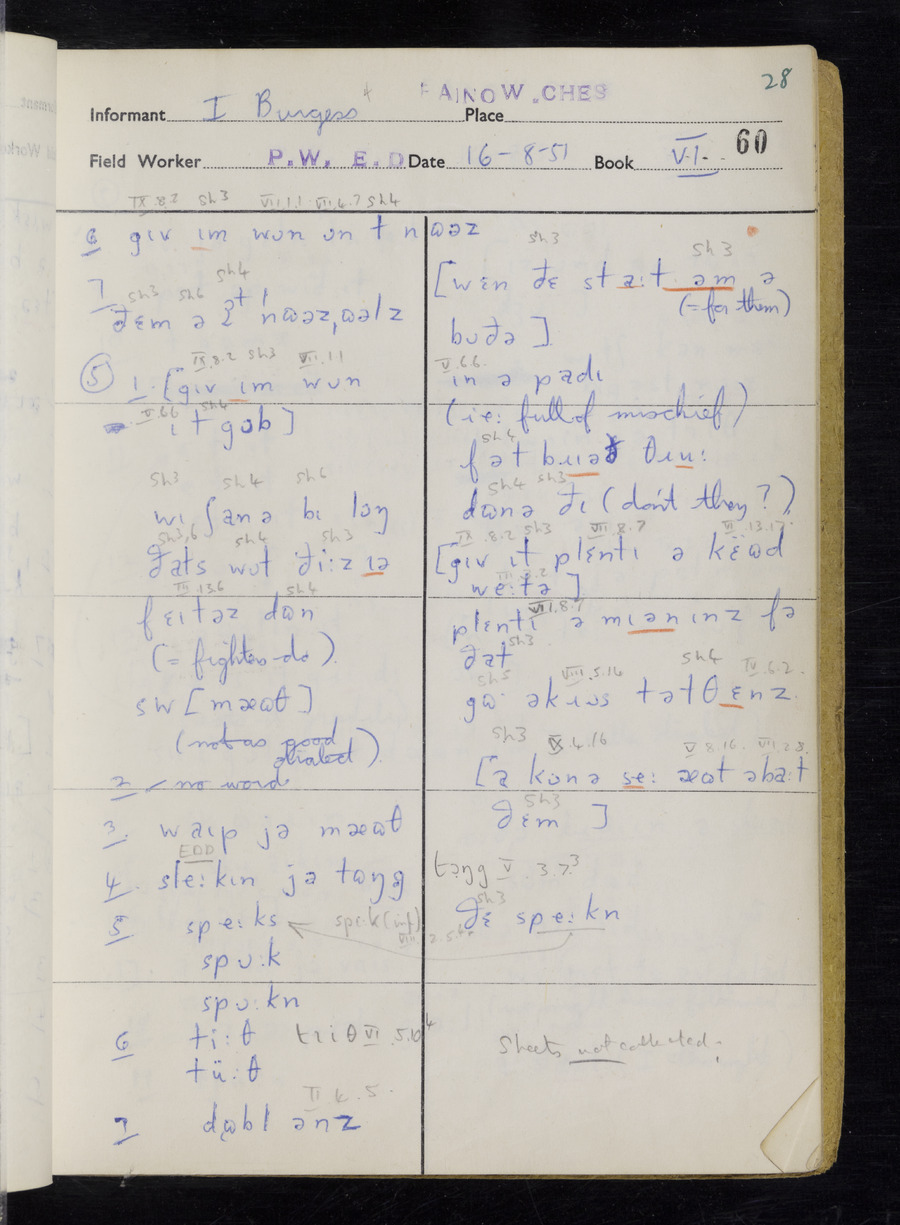 28
RAINOW . CHES
Informant I Burgess Place
Field Worker P. W. E. D Date 16-8-51 Book VI. 60
IX.8.2 sh3 VII.1.1 VI.4.7 sh4
6 gɪv ɪm wʊn ʊn t nɷəz
sh4
7 sh3 sh6
ðɛm ə
nɷəz,ɷəlz
IX.8.2 sh3 VII.1.1
⑤ 1. [gɪv ɪm wʊn
V.6.6 sh4
ɪt gɒb]
sh3 sh4 sh6
wɪ ʃanə bɪ lɒŋ
sh3,6 sh4 sh3
ðats wʊt ði:z ɪə
III.13.6 sh4
fɛɪtəz dɷn
(= fighters-do).
sw [mæɷθ]
(not as good
)
2 no word
3. waɪp jə mæɷθ
EDD
4. sle:kɪn jə tɷŋg
5 spe:ks spe:k (inf)
VIII.2.5
spʊ:k
spʊ:kn
6 ti:θ tɪiθ VI.5.10⁴
tü:θ
II k.5.
7 dɷbl ənz
sh3 sh3
[wɛn ðɛ sta:t əm ə
(= for them)
bʊðə]
V.6.6.
ɪn ə padɪ
(i.e: full of mischief)
sh4
fət bɪɪəð θɪu:
sh4 sh3
dɷnə ðɪ (don't they?)
IX.8.2 sh3 VII.8.7 VI.13.17.
[gɪv ɪt plɛntɪ ə këɷd
we:tə]
VII.8.7
plɛntɪ ə mɪənɪnz fə
sh3
ðat
sh5 VIII.5.16 sh4 IV.6.2.
gɷ əkɪɷs tətθɛnz.
sh3 IX.4.16 V.8.16. VII.2.8.
[ə kʊnə se: æɷt əba:t
sh3
ðɛm ]
təŋg V.3.7.3
sh3
ðɛ spe:kn
Sheets not collected.